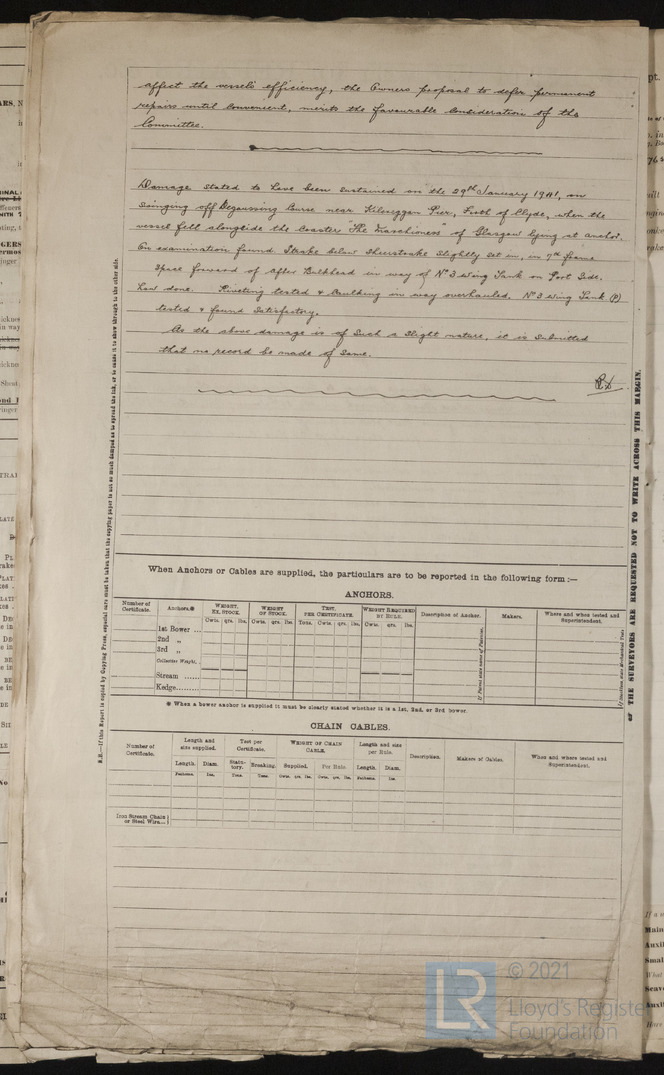 affect the vessel's efficiency, the Owners proposal to defer permanent
repairs until convenient, merits the favourable consideration of the
Committee.
Damage stated to have been sustained on the 29th January 1941, on
swinging off Degaussing Course near Kilcreggan Pier, Firth of Clyde, when the
vessel fell alongside the Coaster "The Marchioness" of Glasgow lying at anchor.
On examination found. Strake below Sheerstrake slightly set in, in 7th frame
space forward of After Bulkhead in way of No 3 Wing Tank on Port Side.
Now done. Riveting tested & Caulking in way overhauled. No 3 Wing Tank (P)
tested & found satisfactory.
As the above damage is of such a slight nature, it is submitted
that no record be made of same.
When Anchors or Cables are supplied, the particulars are to be reported in the following form :—
ANCHORS.
Number of Certificate. Anchors.* WEIGHT, EX. STOCK. WEIGHT OF STOCK. TEST, PER CERTIFICATE. WEIGHT REQUIRED BY RULE. Description of Anchor. Makers. Where and when tested and Superintendent.
Cwts. qrs. lbs. Cwts. qrs. lbs. Tons. Cwts. qrs. lbs. Cwts. qrs. lbs.
1st Bower ...
2nd „
3rd „
Collective Weight.
Stream ......
Kedge........
* When a bower anchor is supplied it must be clearly stated whether it is a 1st, 2nd, or 3rd bower.
CHAIN CABLES.
Number of Certificate. Length and size supplied. Test per Certificate. WEIGHT OF CHAIN CABLE. Length and size per Rule. Description. Makers of Cables. When and where tested and Superintendent.
Length. Diam. Statutory. Breaking. Supplied. Per Rule. Length. Diam.
Fathoms. Ins. Tons. Tons. Cwts. qrs. lbs. Cwts. qrs. lbs. Fathoms. Ins.
Iron Stream Chain or Steel Wire...
N.B.—If this Report is copied by Copying Press, especial care must be taken that the copying paper is not so much damped as to spread the ink, or to cause it to show through to the other side.
THE SURVEYORS ARE REQUESTED NOT TO WRITE ACROSS THIS MARGIN.
LR
© 2021
Lloyd's Register
Foundation